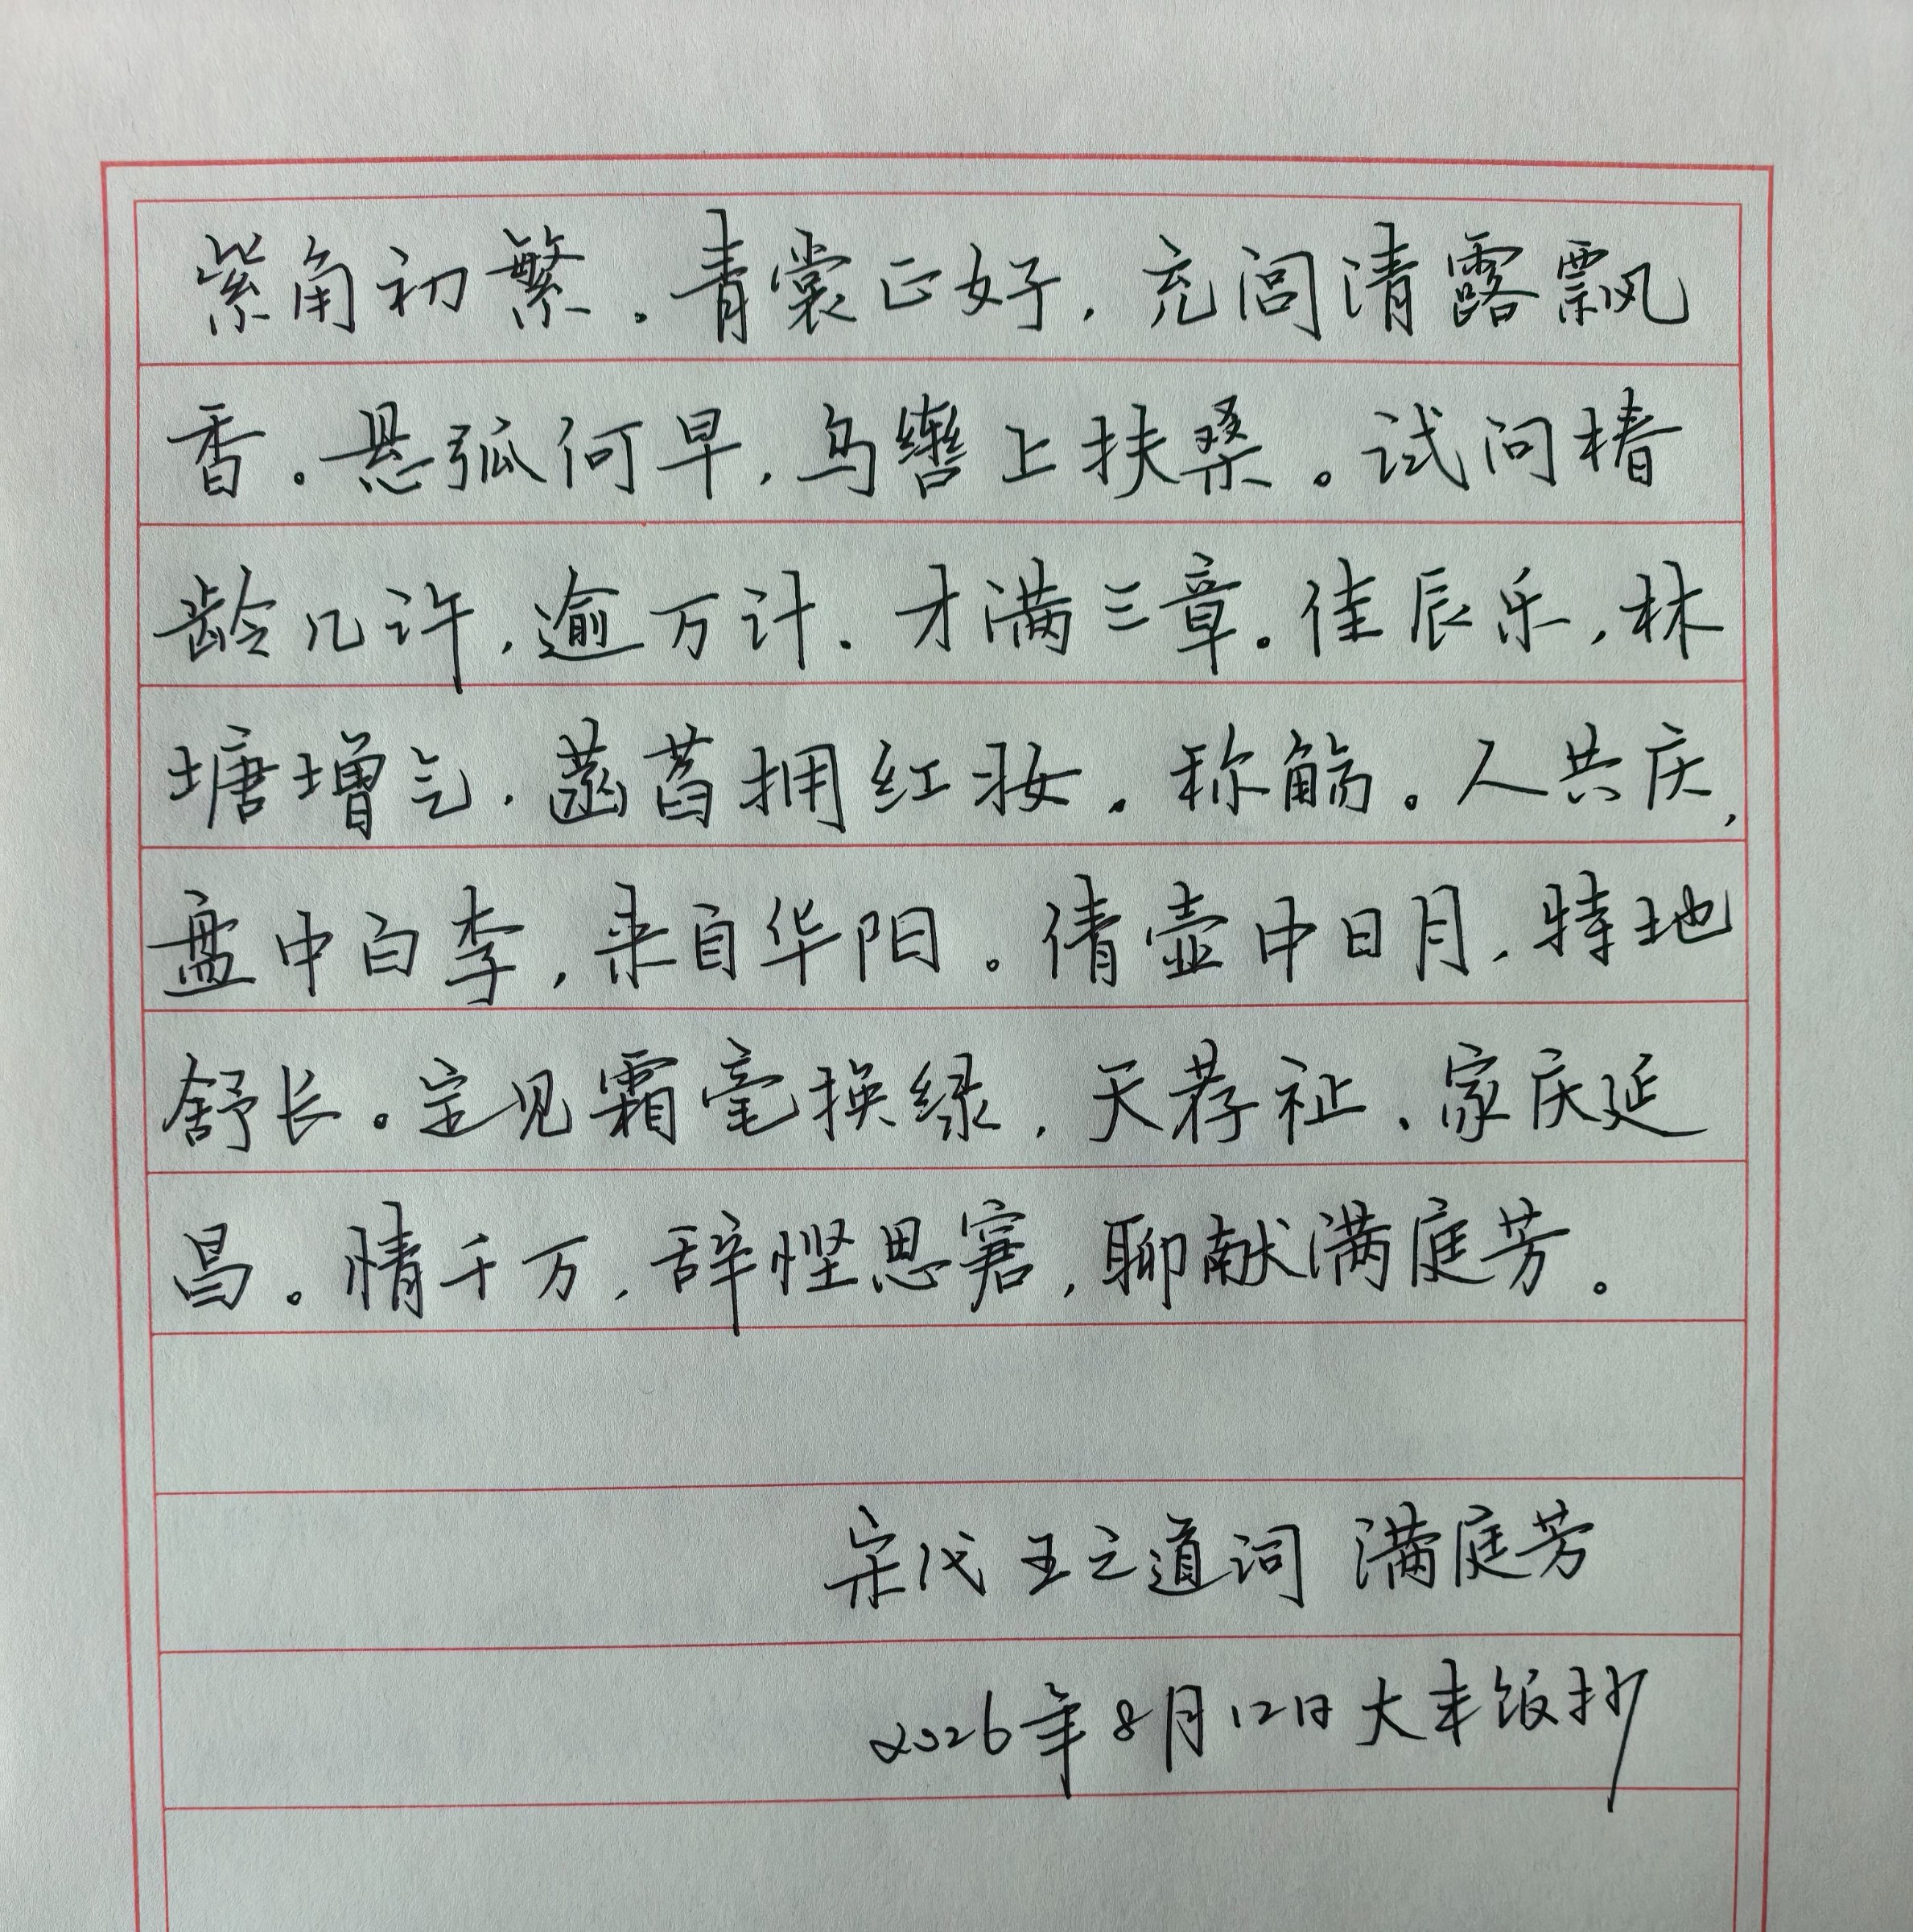 紫角初繁。青裳正好,充闾清露飘
香。悬弧何早,乌辔上扶桑。试问椿
龄几许,逾万计.才满三章。佳辰乐,林
塘增气.菡萏拥红妆。称觞。人共庆,
盘中白李,来自华阳。倩壶中日月,特地
舒长。定见霜毫换绿,天荐祉、家庆延
昌。情千万,辞悭思窘,聊献满庭芳。
宋代 王之道词 满庭芳
2026年8月12日大丰饭抄